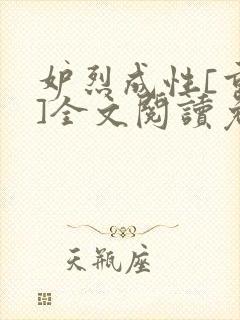 妒烈成性[重
]全文閱讀免
天瓶座